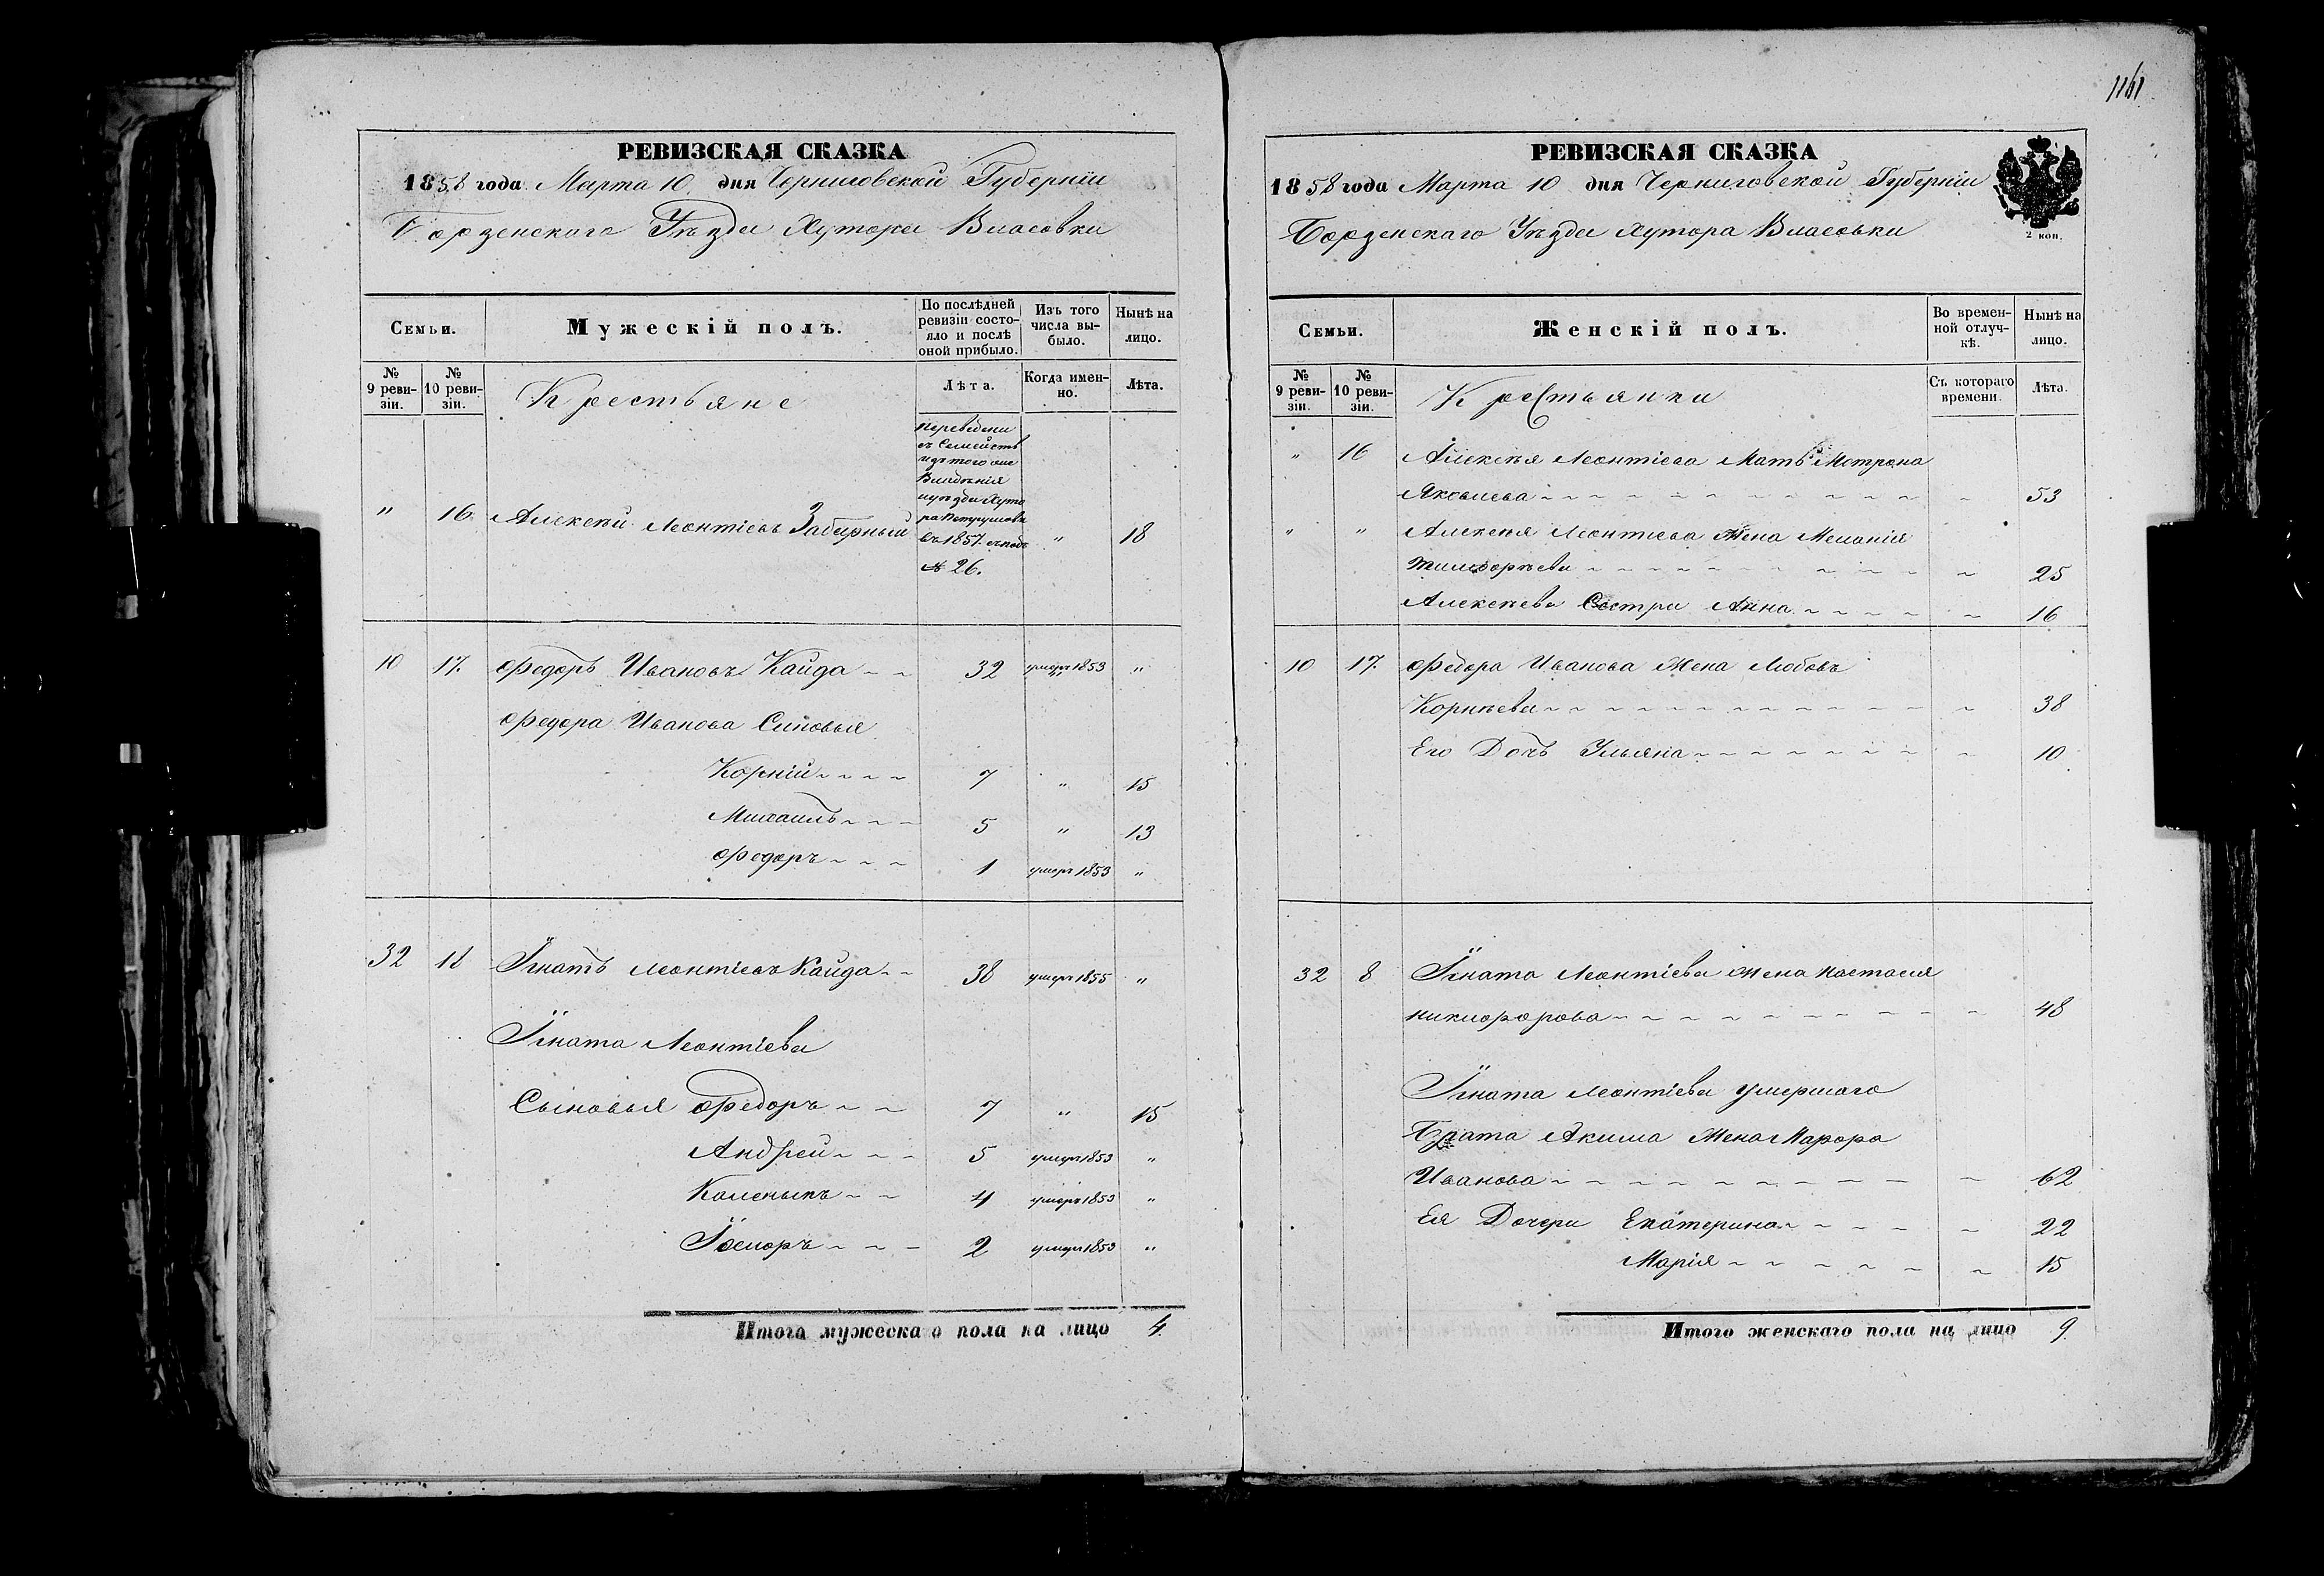 1161
РЕВИЗСКАЯ СКАЗКА
1858 года Марта 10 дня Черниговской Губерніи
Борзенскаго Уѣзда Хутора Власовки
Семьи.
Мужескій полъ.
По послѣдней ревизіи состояло и послѣ оной прибыло.
Изъ того числа выбыло.
Нынѣ на лицо.
№ 9 ревизіи.
№ 10 ревизіи.
Крестьяне
Лѣта.
Когда именно.
Лѣта.
Переведени
съ Семейств
изъ того же
Владѣнія
иуѣзда Хуто
ра
въ 1857. сподъ
№ 26.
" 16 Алексѣй Леонтіевъ Забарный " 18
10 17. Федоръ Ивановъ Кайда 32 умеръ 1853 "
Федора Иванова Синовья
Корній 7 " 15
Михаилъ 5 " 13
Федоръ 1 умеръ 1853 "
32 18 Игнатъ Леонтіевъ Кайда 38 умеръ 1855 "
Игната Леонтіева
Сыновья Федоръ 7 " 15
Андрей 5 умеръ 1853 "
4 умеръ 1853 "
2 умеръ 1853 "
Итого мужескаго пола на лицо 4.
РЕВИЗСКАЯ СКАЗКА
1858 года Марта 10 дня Черниговской Губерніи
2 коп.
Борзенскаго Уѣзда Хутора Власовки
Семьи.
Женскій полъ.
Во временной отлучкѣ.
Нынѣ на лицо.
№ 9 ревизіи.
№ 10 ревизіи.
Крестьянки
Съ котораго времени.
Лѣта.
" 16 Алексѣя Леонтіева Мать Мотрона
Яковлева 53
" " Алексѣя Леонтиева Жена Меланія
Тимофѣева 25
Алексѣева Сестра Анна 16
10 17. Федора Иванова Жена Любовъ
Корнѣева 38
Его Дочь Ульяна 10
32 8 Игната Леонтіева Жена Настасия
Никифорова 48
Игната Леонтіева умершаго
Брата Акима Жена Марфа
Иванова 62
Ея Дочери Екатерина 22
Марія 15
Итого женскаго пола на лицо 9.